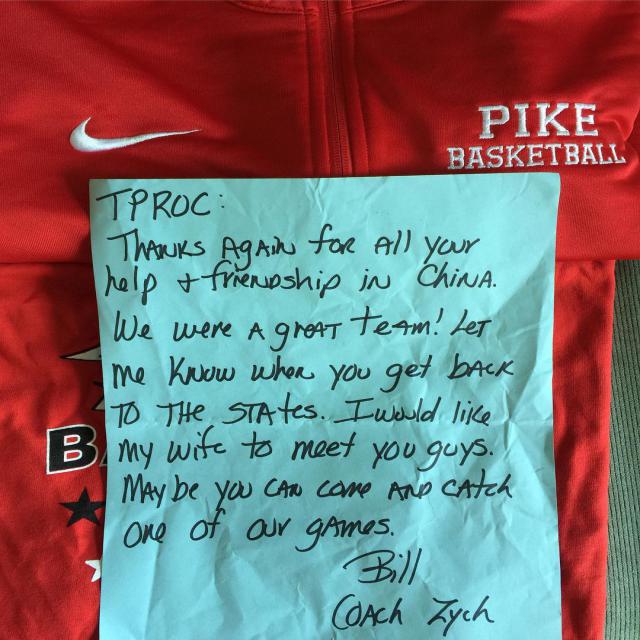 PIKE
BASKETBALL
TPROC:
THANKS AgAIN for All your
help + friendship in CHINA.
We were A greAT TeAM! LeT
me Know when you get bAcK
TO THe STATes. I would like
My wife to meet you guys.
MAybe you CAN come AND CATCH
one of our gAmes.
Bill
COACH Zych